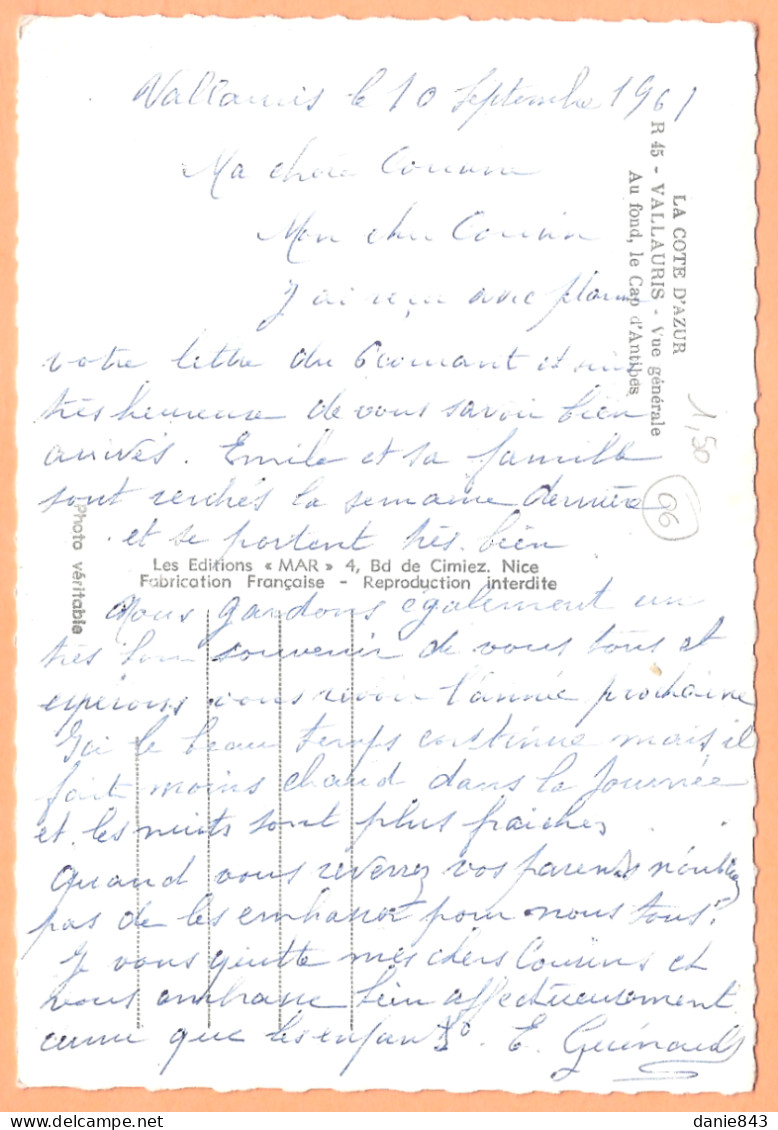 Vallauris le 10 Septembre 1961
Ma chère Cousine
Mon cher Cousin
J'ai reçu avec plaisir
votre lettre du 6 courant et suis
très heureuse de vous savoir bien
arrivés. Emile et sa famille
sont la semaine dernière
et se portent très bien
Nous gardons également un
très bon souvenir de vous tous et
espérons vous revoir l'année prochaine
Ici le beau temps continue mais il
fait moins chaud dans la Journée
et les nuits sont plus fraiches
Quand vous reverrez vos parents n'oubliez
pas de les embrasser pour nous tous.
Je vous quitte mes chers Cousins et
vous embrasse bien affectueusement
ainsi que les enfants. E. Guénaud
LA COTE D'AZUR
R 45 - VALLAURIS - Vue générale
Au fond, le Cap d'Antibes
1,50
06
Photo véritable
Les Editions « MAR » 4, Bd de Cimiez. Nice
Fabrication Française - Reproduction interdite
danie843